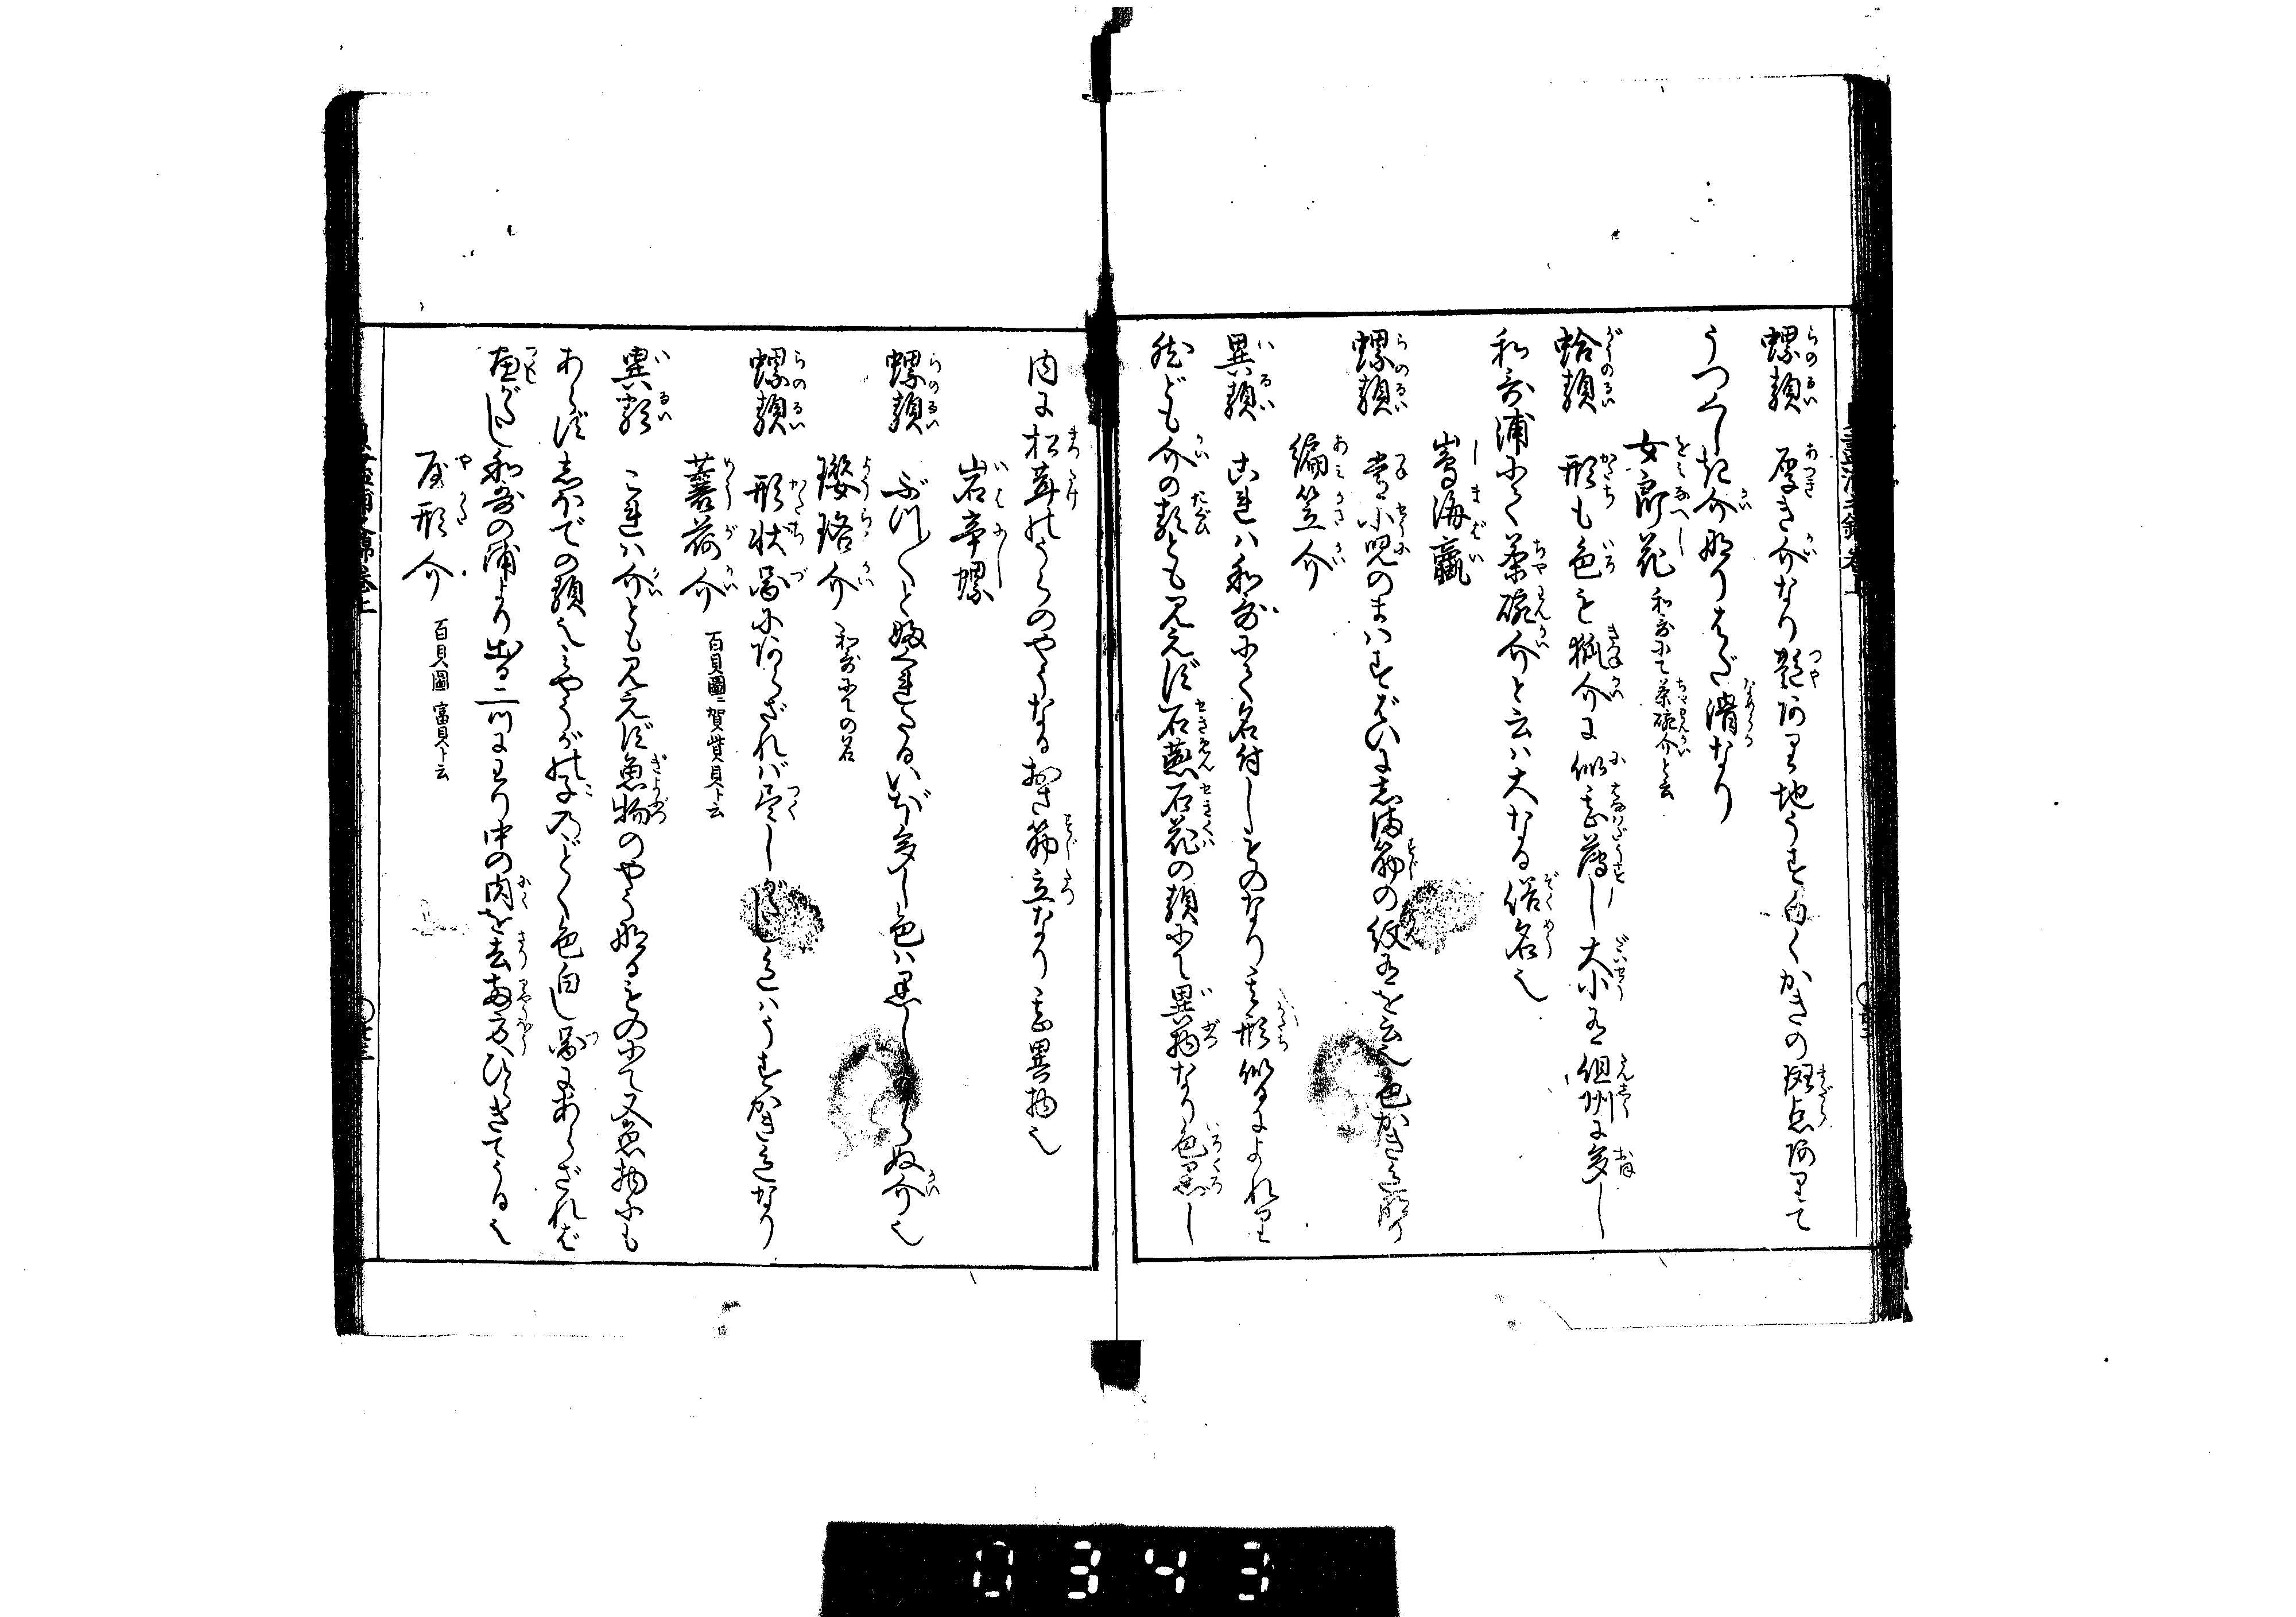 螺類 厚き介なり艶ありて地うすしろくかきの斑点ありて
うつくしき介なりはだ滑なり
女郎花 和哥にて茶碗介と云
蛤類 形も色も狐介に似て薄し大小有但州に多し
和哥浦にて茶碗介と云ハ大なる俗名也
嶌海蠃
螺類 常小児のまハすばいに志ま筋の紋有を云也色かき色なり
編笠介
異類 これハ和哥にて名付しものなり其形似るによれり
然ども介の類とも見えず石燕石花の類にて異物なり色黒し
内に松茸のうらのやうなるおき筋立なり異物也
岩辛螺
螺類 ぶつ〱と婦くれたるいぼ多し色ハ黒し介也
瓔珞介 和哥にての名
螺類 形状図にあらざれバ尽しがたし色ハうすかき色なり
蓑荷介 百貝圖ニ賀貲貝ト云
異類 これハ介とも見えず魚物のやうなるものにて又魚物にも
あらず志ほでの類也みやうがの子のごとく色白し図にあらざれば
尽がたし和哥の浦より出る二つにわり中の肉を去両方ひらきてうる也
屋形介 百貝圖 富貝ト云
0343